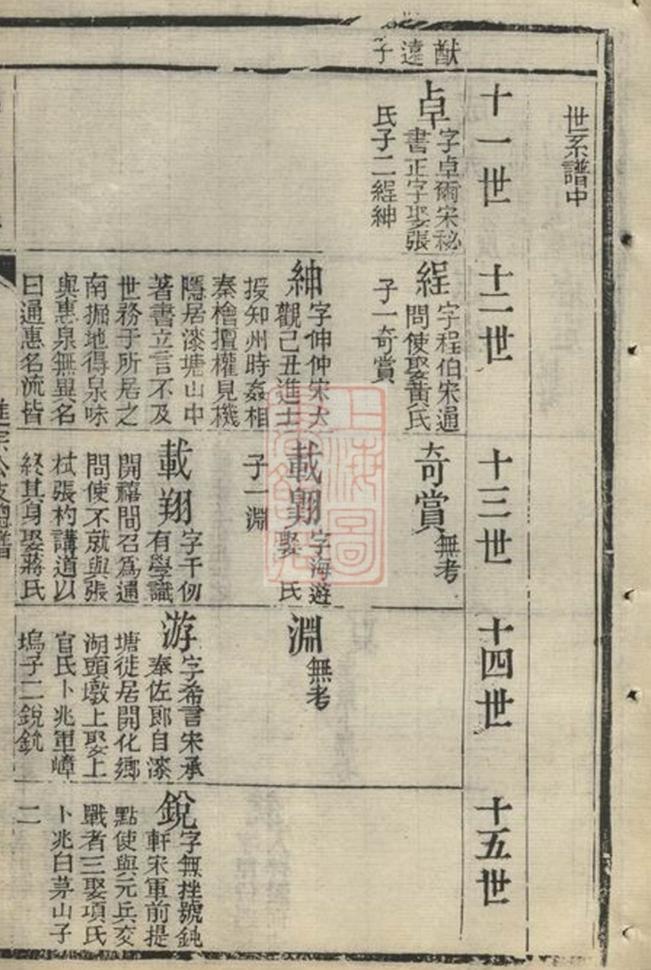 世系譜中
十一世
十二世
十三世
十四世
十五世
猷
達
子
卓
字卓爾宋秘
書正字娶張
氏子二程紳
程
字程伯宋通
問使娶黃氏
子一奇賞
奇賞
無考
紳
字伸仲宋大
觀己丑進士
授知州時姦相
秦檜擅權見機
隱居漆塘山中
著書立言不及
世務于所居之
南掘地得泉味
與惠泉無異名
曰通惠名流皆
載翺
字海遊
娶 氏
子一淵
淵
無考
載翔
字千仞
有學識
開禧間召爲通
問使不就與張
栻張杓講道以
終其身娶蔣氏
游
字希言宋承
奉佐郎自漆
塘徙居開化鄉
湖頭墩上娶上
官氏卜兆軍嶂
塢子二銳銃
銳
字無挫號鈍
軒宋軍前提
點使與元兵交
戰者三娶項氏
卜兆白茅山子
二